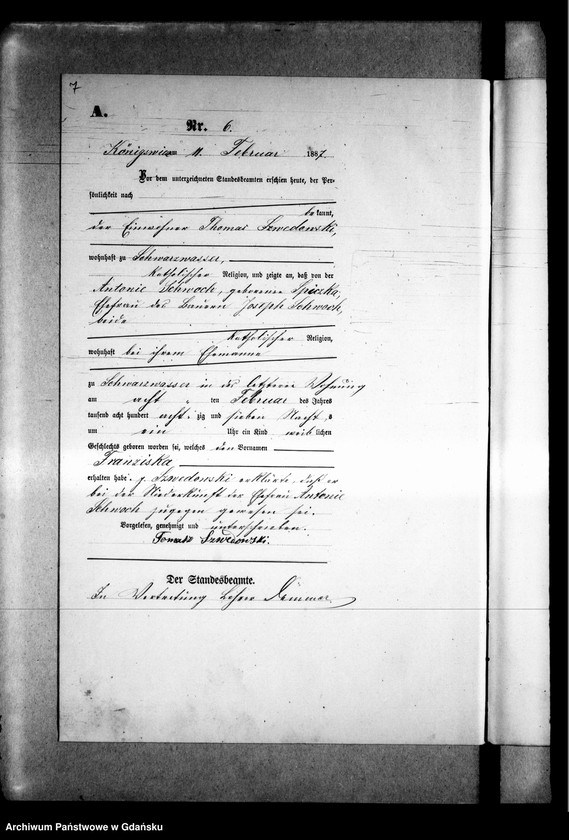 7
A.
Nr. 6.
Königswiese 11. Februar 1887.
Vor dem unterzeichneten Standesbeamten erschien heute, der Per-
sönlichkeit nach
bekannt,
der Einwohner Thomas Szwedowski,
wohnhaft zu Schwarzwasser,
Katholischer Religion, und zeigte an, daß von der
Antonie Schwoch, geborene Spiczka,
Ehefrau des Bauern Joseph Schwoch,
beide
Katholischer Religion,
wohnhaft bei ihrem Ehemanne
zu Schwarzwasser in der letztern Wohnung
am acht ten Februar des Jahres
tausend acht hundert acht zig und sieben Nachts
um ein Uhr ein Kind weib lichen
Geschlechts geboren worden sei, welches den Vornamen
Franziska
erhalten habe. p. Szwedowski erklärte, daß er
bei der Niederkunft der Ehefrau Antonie
Schwoch zugegen gewesen sei.
Vorgelesen, genehmigt und unterschrieben.
Tomasz Szwedowski.
Der Standesbeamte.
In Vertretung
Archiwum Państwowe w Gdańsku